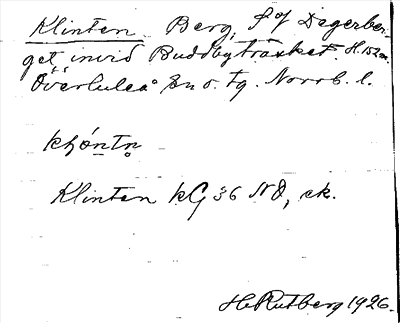 Klinten Berg, S of Degerber-
get invid Buddbyträsket. H. 152 m.
Överluleå sn o. tg. Norrb. l.
Klinten kG 36 NO, ek.
H. Rutberg 1926.